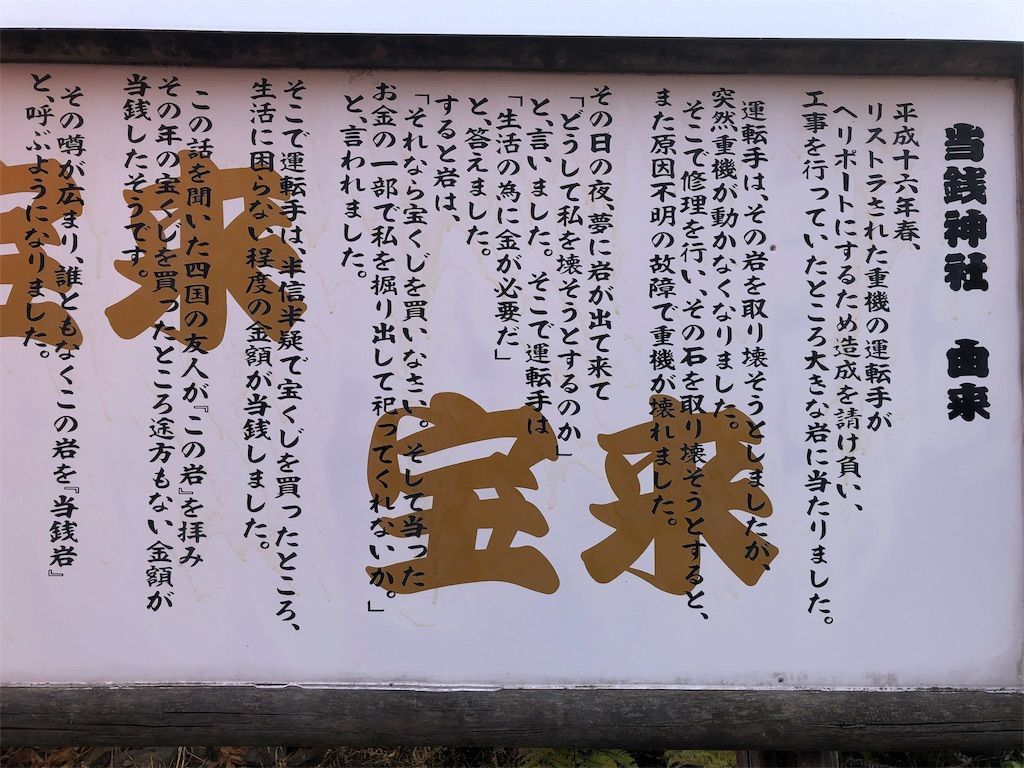 当銭神社　由来
平成十六年春、
リストラされた重機の運転手が
ヘリポートにするため造成を請け負い、
工事を行っていたところ大きな岩に当たりました。
運転手は、その岩を取り壊そうとしましたが、
突然重機が動かなくなりました。
そこで修理を行い、その石を取り壊そうとすると、
また原因不明の故障で重機が壊れました。
その日の夜、夢に岩が出て来て
「どうして私を壊そうとするのか」
と、言いました。そこで運転手は
「生活の為に金が必要だ」
と、答えました。
すると岩は、
「それなら宝くじを買いなさい。そして当った
お金の一部で私を掘り出して祀ってくれないか。」
と、言われました。
そこで運転手は、半信半疑で宝くじを買ったところ、
生活に困らない程度の金額が当銭しました。
この話を聞いた四国の友人が『この岩』を拝み
その年の宝くじを買ったところ途方もない金額が
当銭したそうです。
その噂が広まり、誰ともなくこの岩を『当銭岩』
と、呼ぶようになりました。
宝来
宝来